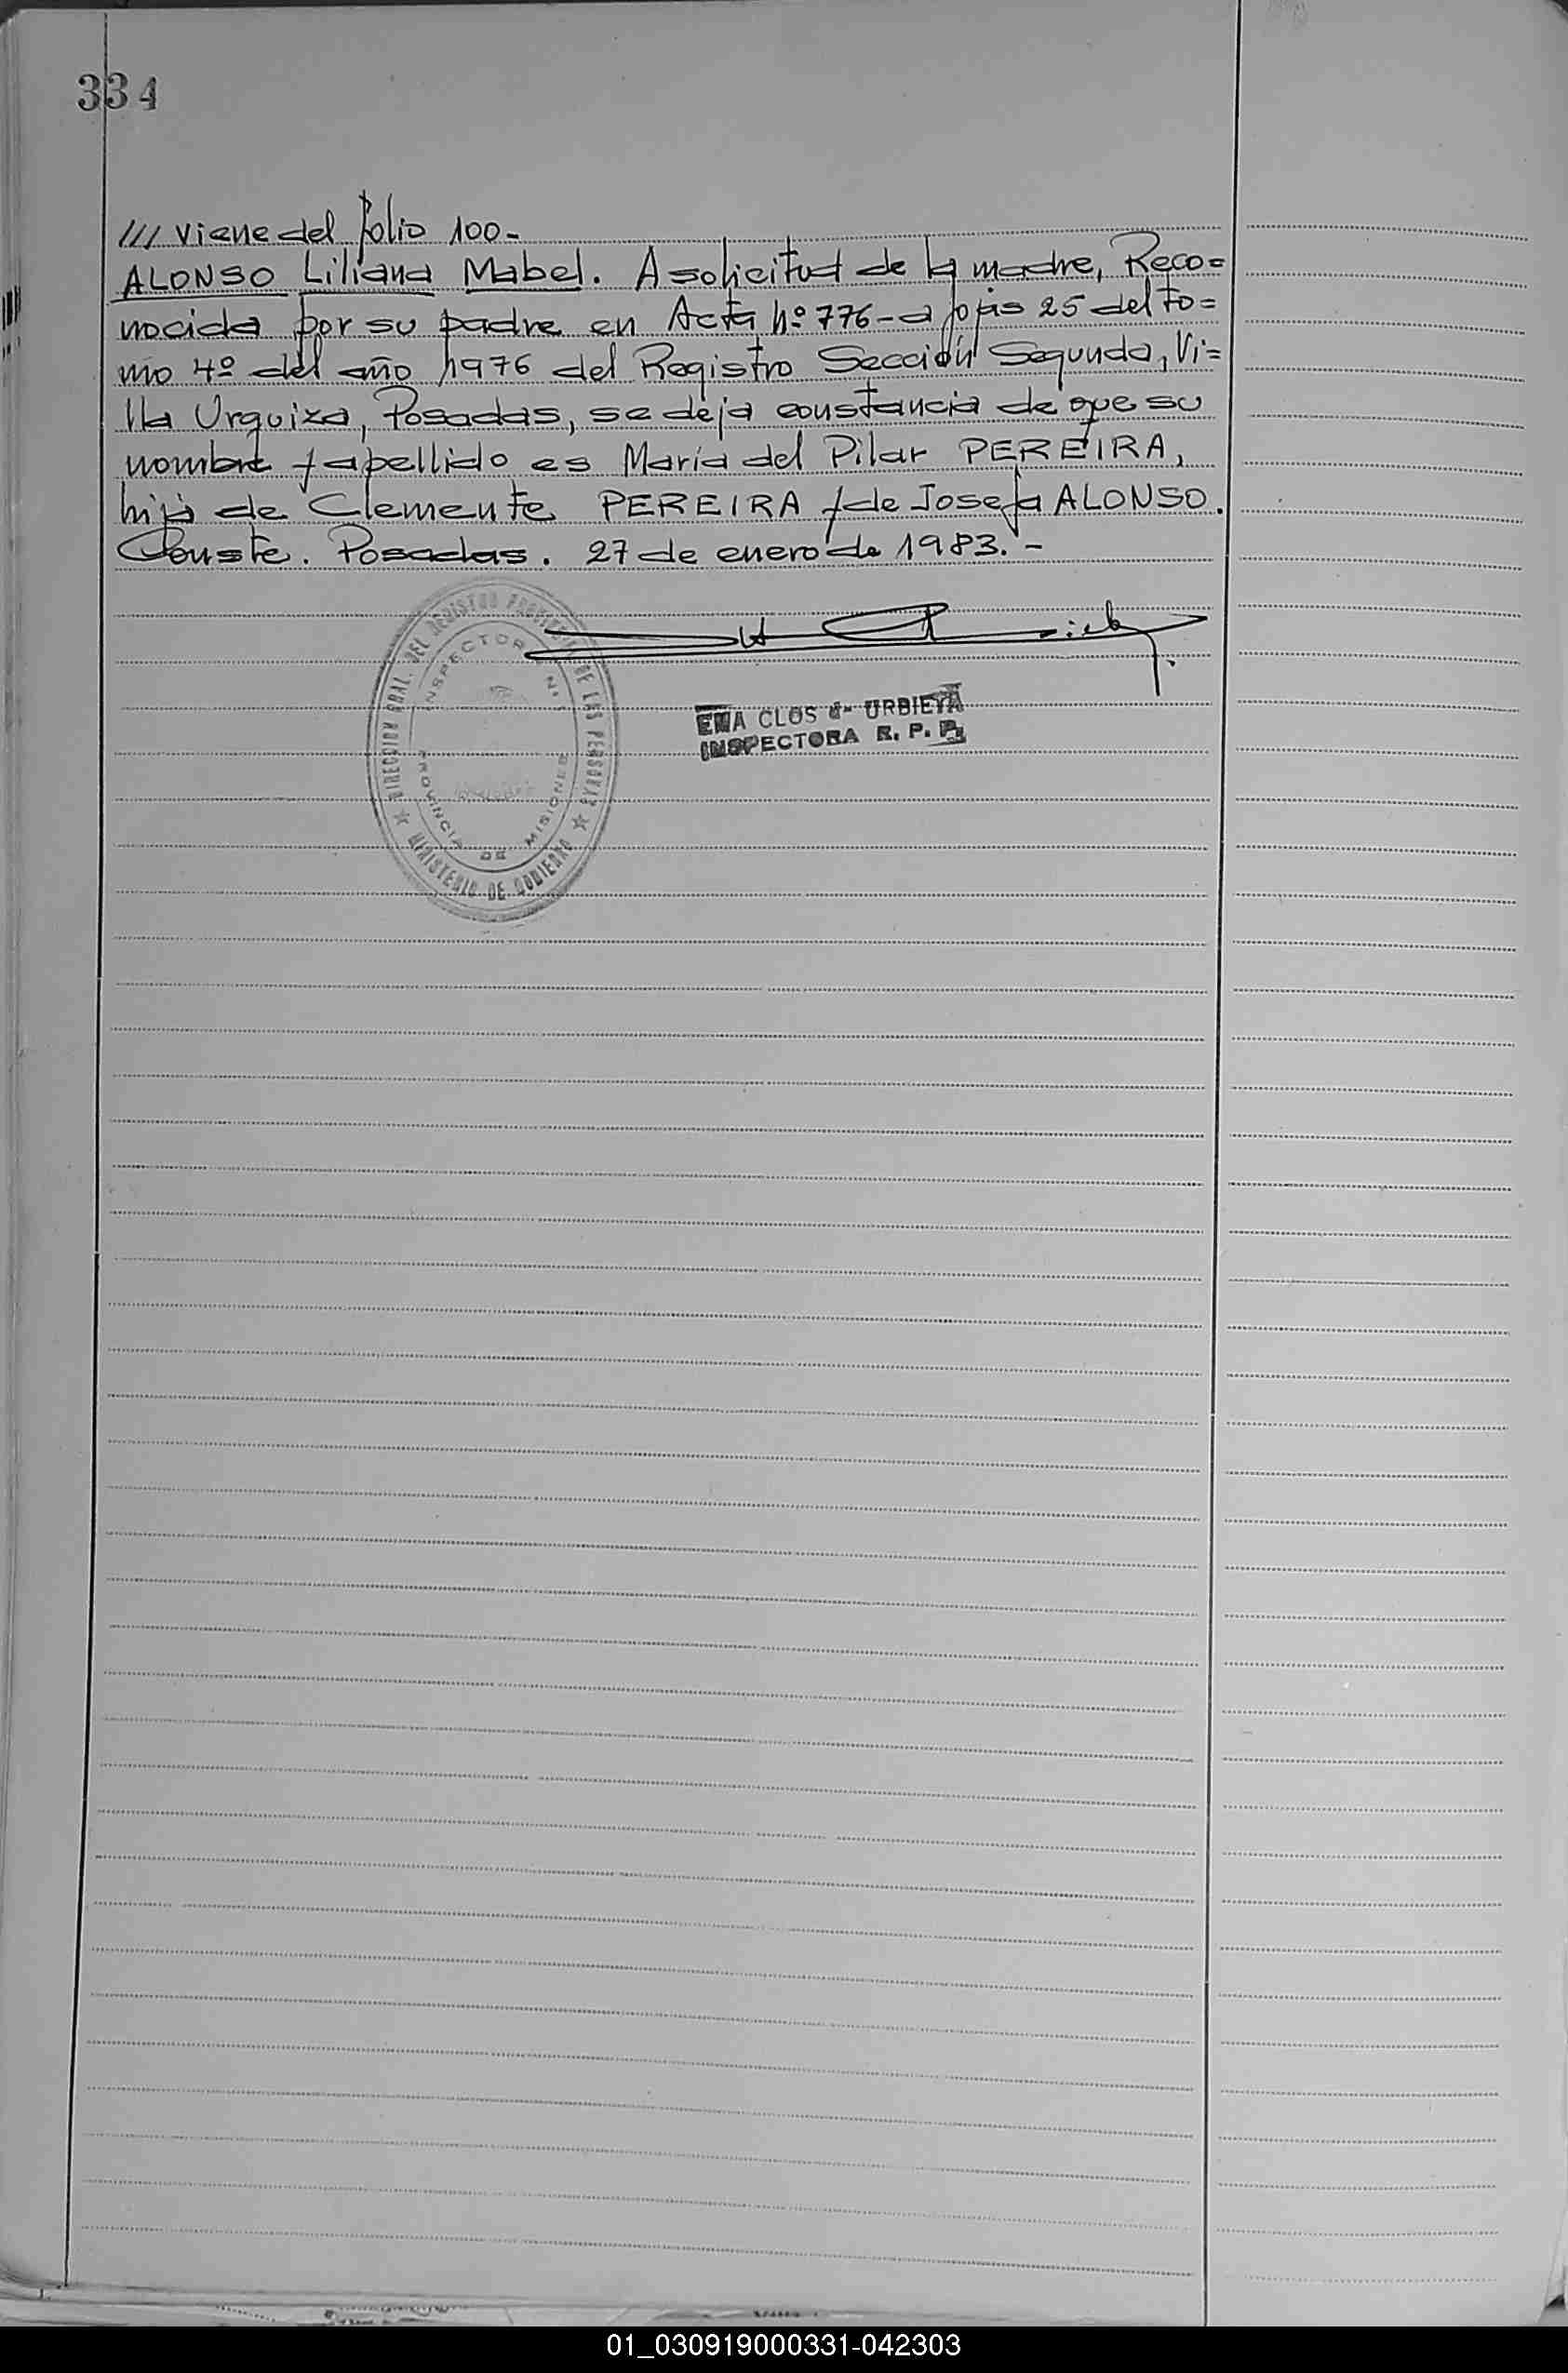 334
/// Viene del folio 100-
ALONSO Liliana Mabel. A solicitud de la madre, Reco=
nocida por su padre en Acta nº 776- a fojas 25 del To=
mo 4º del año 1976 del Registro Sección Segunda, Vi=
lla Urquiza, Posadas, se deja constancia de que su
nombre y apellido es María del Pilar PEREIRA,
hija de Clemente PEREIRA y de Josefa ALONSO.
Conste. Posadas. 27 de enero de 1983.-
DIRECCION GRAL. DEL REGISTRO PROVINCIAL DE LAS PERSONAS
INSPECTOR N. 1
PROVINCIA DE MISIONES
★ MINISTERIO DE GOBIERNO ★
EMA CLOS de URBIETA
INSPECTORA R. P. P.
01_030919000331-042303